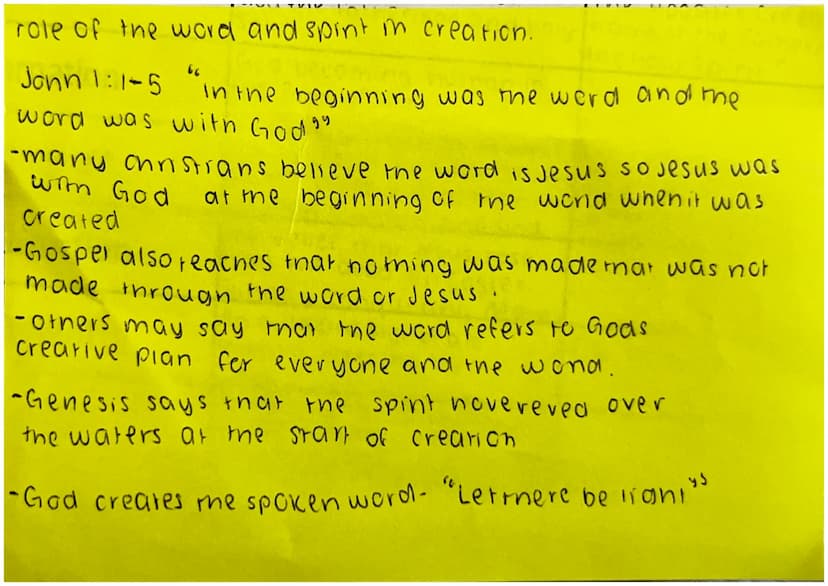 role of the word and spirit in creation.
John 1:1-5 "in the beginning was the word and the
word was with God"
-many christians believe the word is Jesus so Jesus was
with God at the beginning of the world when it was
created
-Gospel also teaches that nothing was made that was not
made through the word or Jesus.
-others may say that the word refers to Gods
creative plan for everyone and the world.
-Genesis says that the spirit hovereved over
the waters at the start of creation
-God creates the spoken word- "Let there be light"